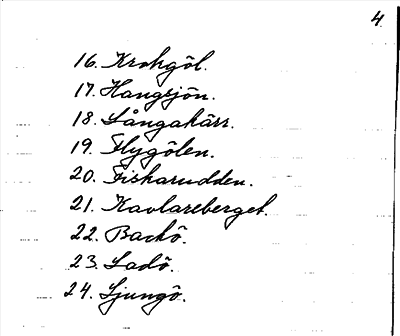 4
16. Krokgöl.
17. Hangsjön.
18. Långakärr.
19. Flygölen.
20. Fiskarudden.
21. Kavlareberget.
22. Backö.
23. Ladö.
24. Ljungö.